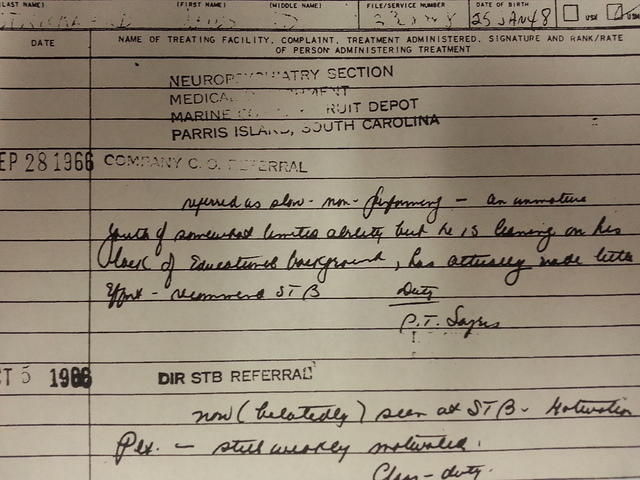 LAST NAME) (FIRST NAME) (MIDDLE NAME) FILE/SERVICE NUMBER DATE OF BIRTH
25 JAN 48 USN
DATE NAME OF TREATING FACILITY, COMPLAINT, TREATMENT ADMINISTERED, SIGNATURE AND RANK/RATE
OF PERSON ADMINISTERING TREATMENT
NEUROPSYCHIATRY SECTION
MEDICAL
MARINE RUIT DEPOT
PARRIS ISLAND, SOUTH CAROLINA
EP 28 1966 COMPANY C. O. REFERRAL
referred as slow - non - performing - an immature
youth of somewhat limited ability but he is leaning on his
lack of Educational background, has actually made little
Effort - recommend STB Duty
P.T.
CT 5 1966 DIR STB REFERRAL
now (belatedly) seen at STB - Motivation
Plt. - still weakly motivated.
duty.